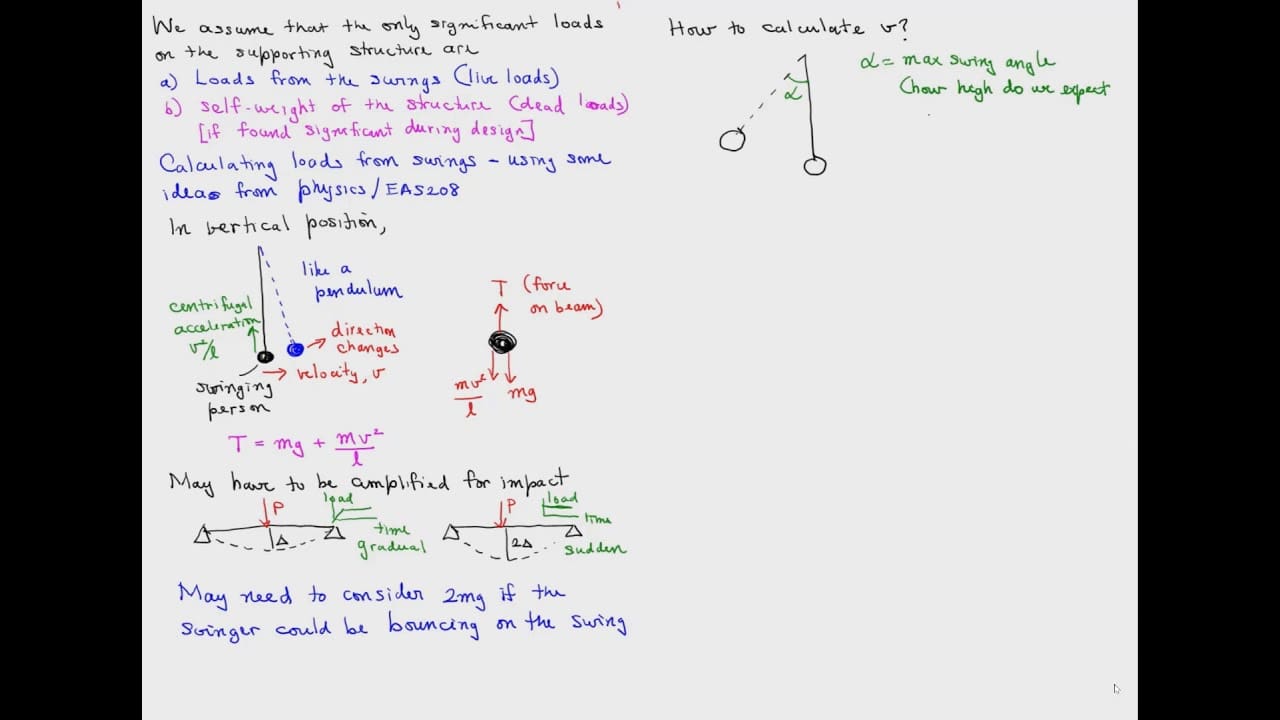 We assume that the only significant loads
on the supporting structure are
a) Loads from the swings (live loads)
b) self-weight of the structure (dead loads)
[if found significant during design]
Calculating loads from swings - using some
ideas from physics/EAS208
In vertical position,
like a
pendulum
centrifugal
acceleration
v²/l
direction
changes
velocity, v
swinging
person
T (force
on beam)
mv²/l
mg
T = mg + mv²/l
May have to be amplified for impact
P
load
Δ
time
gradual
P
load
2Δ
time
sudden
May need to consider 2mg if the
swinger could be bouncing on the swing
How to calculate v?
α
α = max swing angle
(how high do we expect